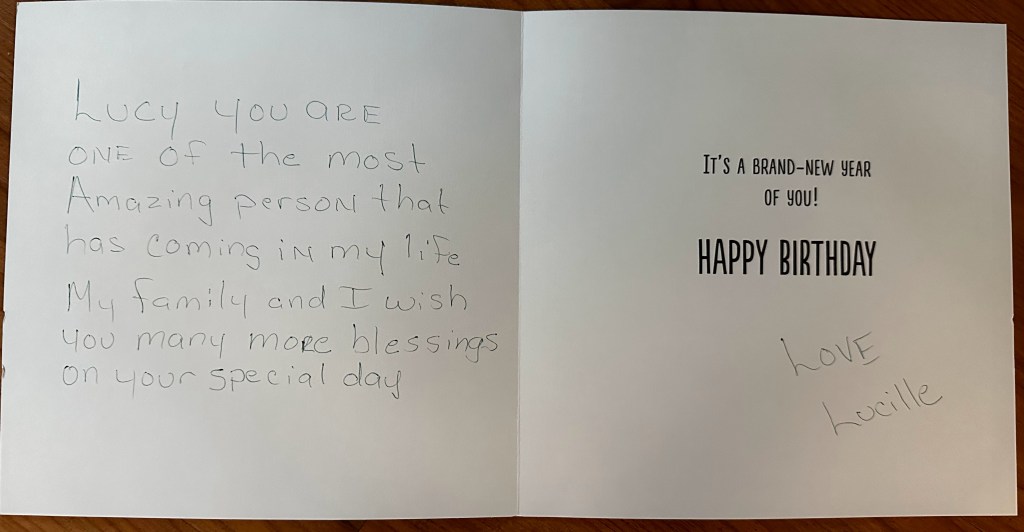 Lucy you are
one of the most
Amazing person that
has coming in my life
My family and I wish
you many more blessings
on your special day
IT'S A BRAND-NEW YEAR
OF YOU!
HAPPY BIRTHDAY
Love
Lucille